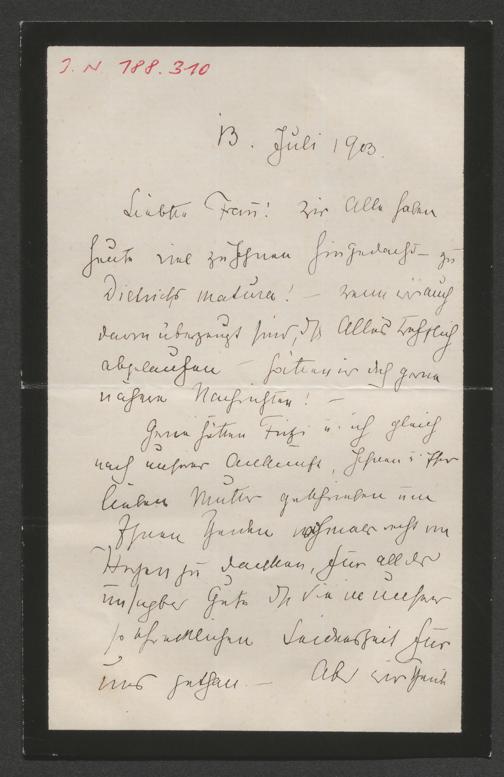 J. N. 188.310
13. Juli 1903.
Liebste Frau! wir Alle haben
heute viel zu Ihnen hingedacht – zu
Dietrichs Matura! – wenn wir auch
davon überzeugt sind, dß Alles trefflich
abgelaufen – hätten wir doch gerne
nähere Nachrichten! –
Gerne hätten Fritzi u. ich gleich
nach unserer Ankunft, Ihnen u. Ihrer
lieben Mutter geschrieben um
Ihnen Beiden nochmals recht von
Herzen zu danken, für all das
unsagbar Gute dß Sie in unserer
so schrecklichen Leidenszeit für
uns gethan. – Aber wir